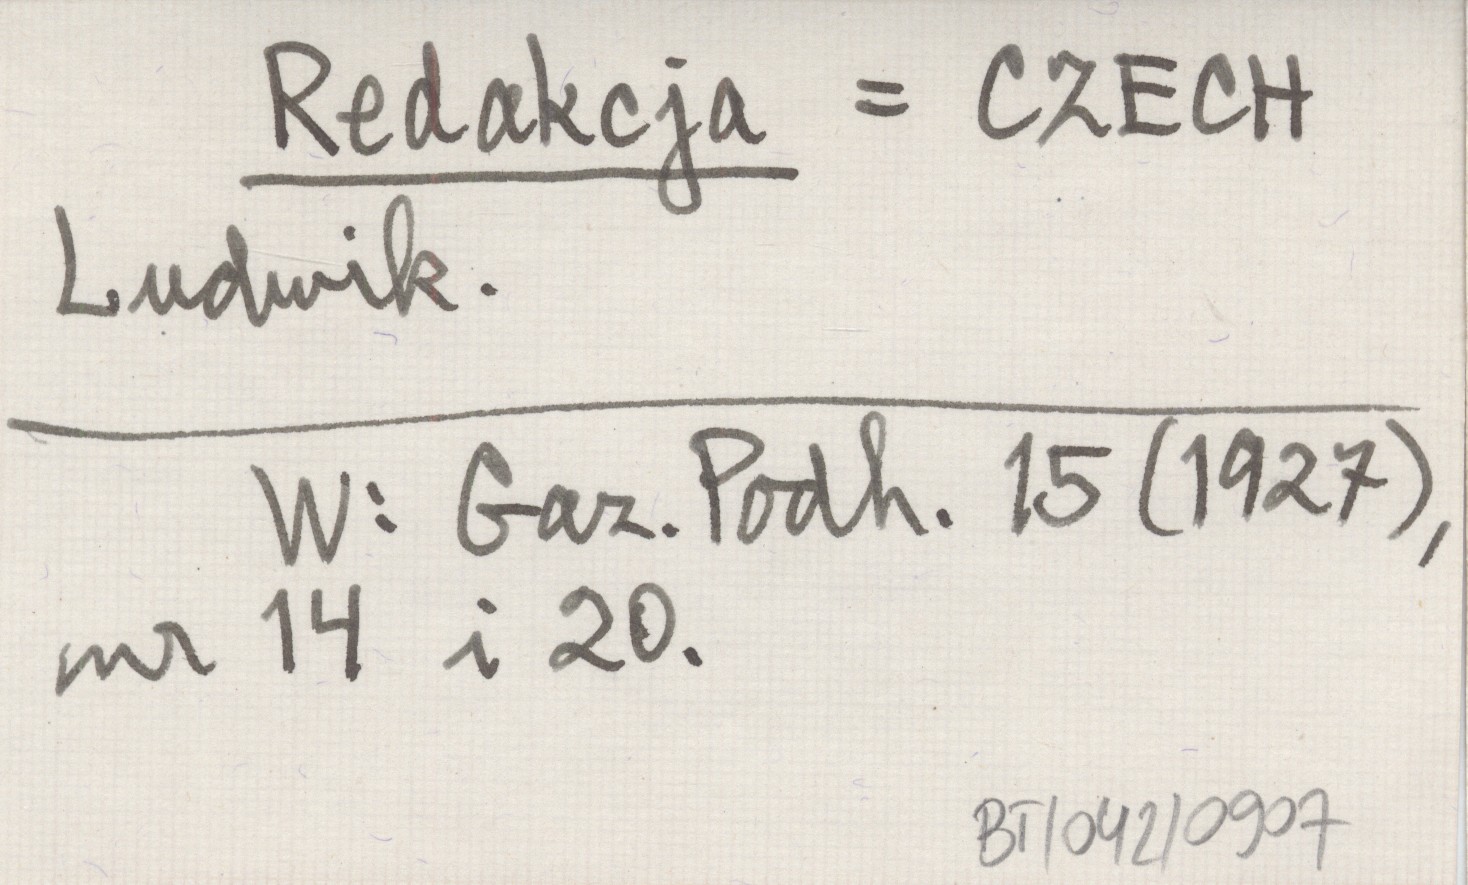 Redakcja = CZECH
Ludwik.
W: Gaz. Podh. 15 (1927),
nr 14 i 20.
BT/042/0907